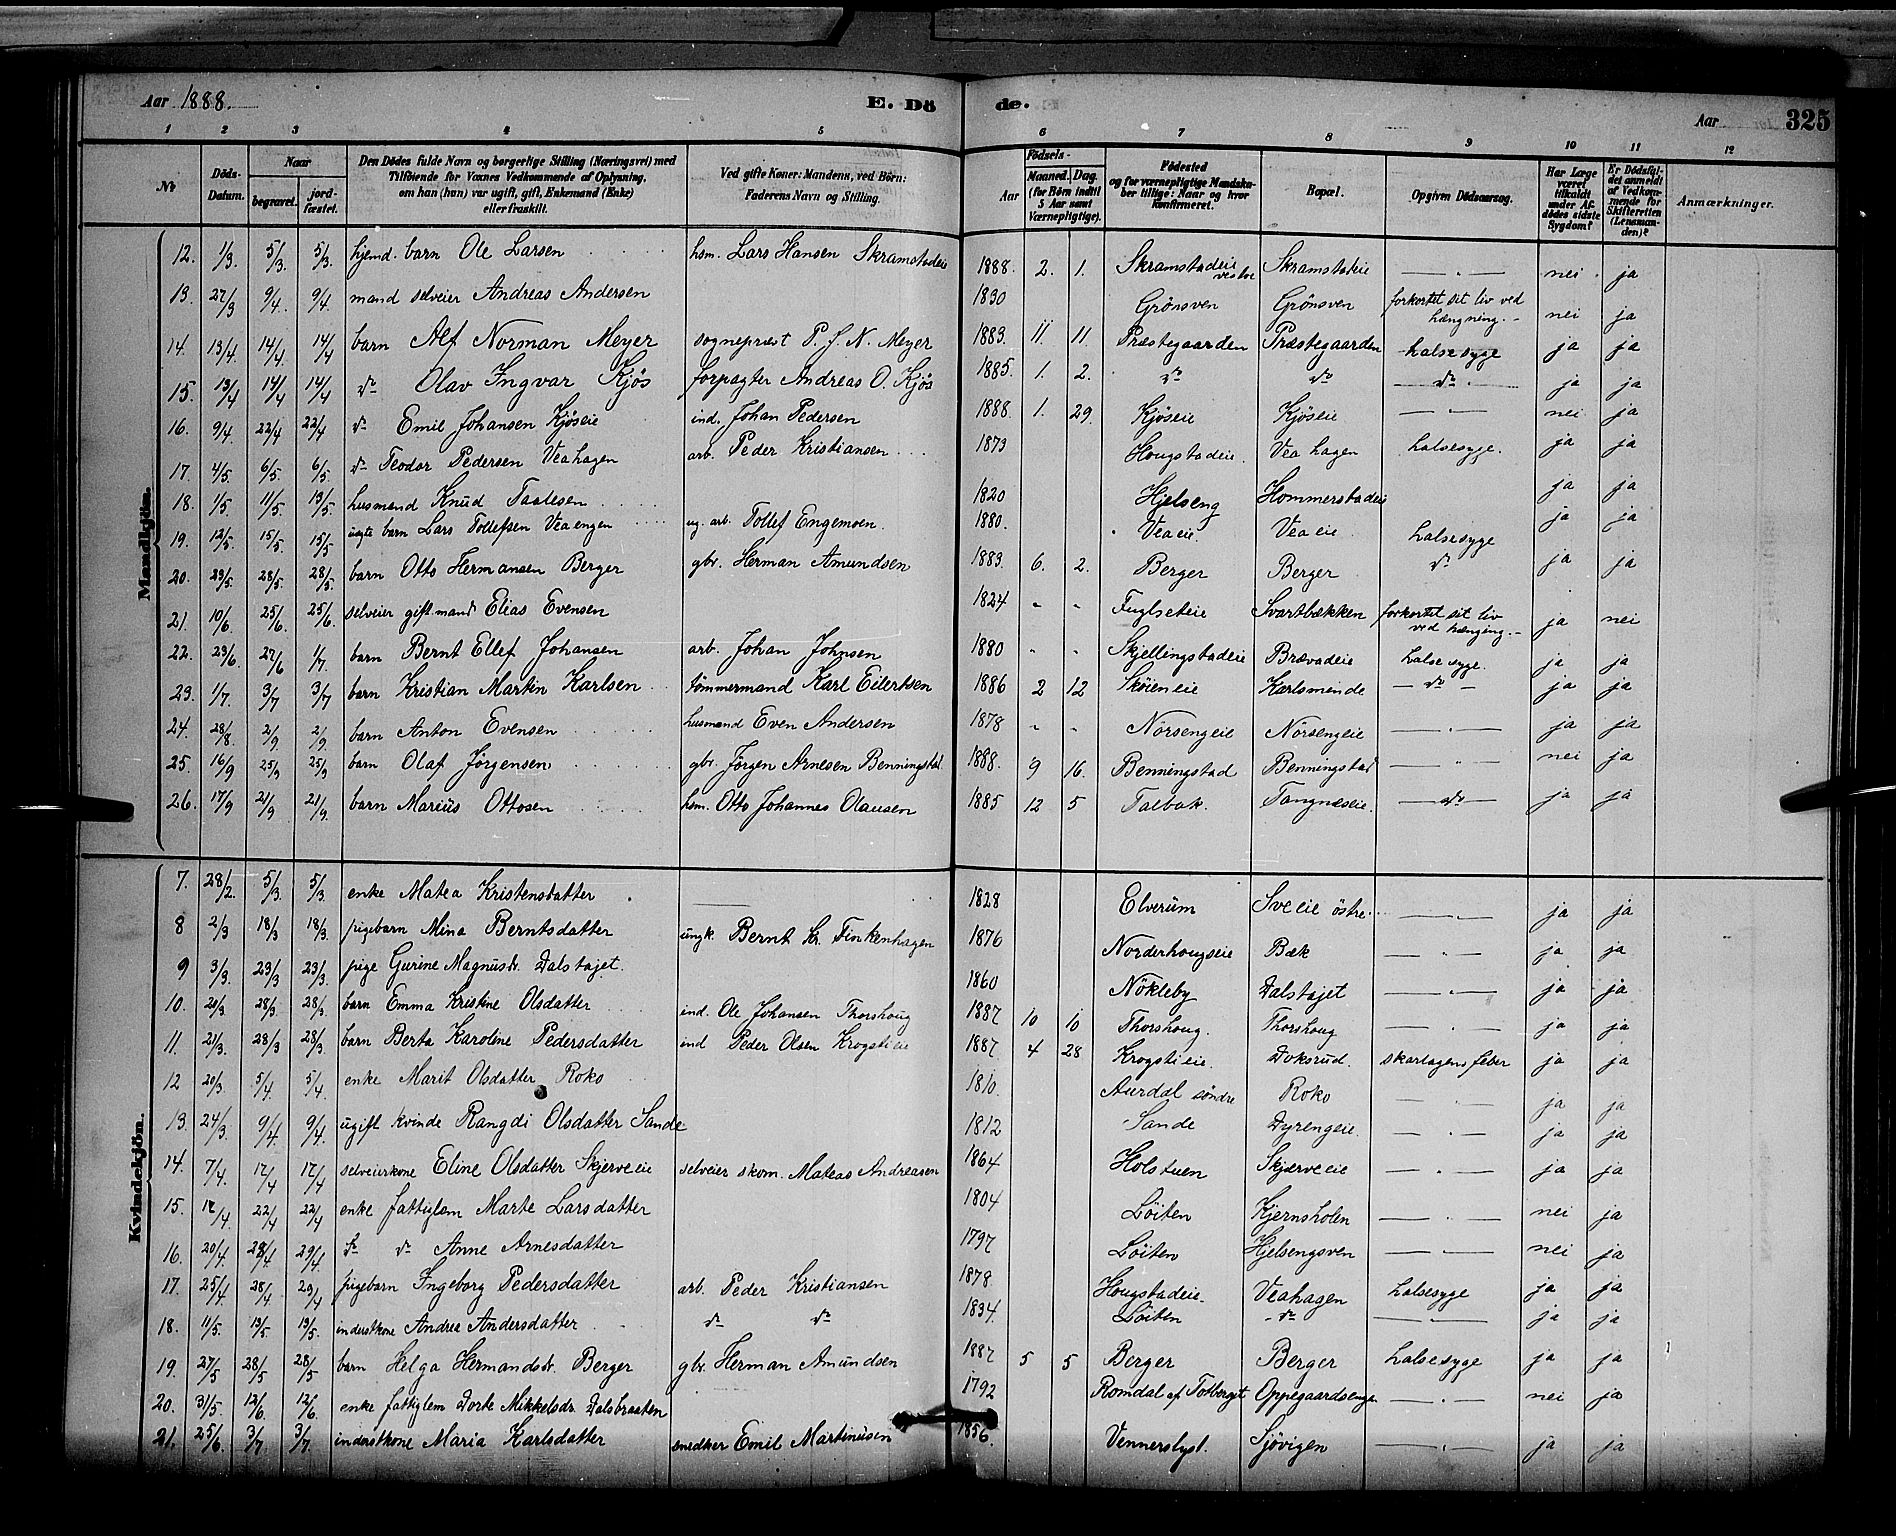 Aar 1888. E. Dö de. Aar 325
1 2 3 4 5 6 7 8 9 10 11 12
№ Döds-Datum. Naar begravet. jord-fæstet. Den Dödes fulde Navn og borgerlige Stilling (Næringsvei) med Tilföiende for Voxnes Vedkommende af Oplysning, om han (hun) var ugift, gift, Enkemand (Enke) eller fraskilt. Ved gifte Koner: Mandens, ved Börn: Faderens Navn og Stilling. Födsels- Aar Maaned. Dag. (for Börn indtil 5 Aar samt Værnepligtige). Födested og for værnepligtige Mandskaber tillige: Naar og hvor konfirmeret. Bopæl. Opgiven Dödsaarsag. Har Læge været tilkaldt under Afdödes sidste Sygdom? Er Dödsfaldet anmeldt af Vedkommende for Skifteretten (Lensmanden)? Anmærkninger.
Mandkjön.
12. 1/3. 5/3. 5/3. hjemd. barn Ole Larsen hsm. Lars Hansen Skramstadeie 1888. 2. 1. Skramstadeie vestre Skramstadeie — " — nei ja
13. 27/3 9/4. 9/4. mand selveier Andreas Andersen 1830 Grönsven Grönsven forkortet sit liv ved hængning. nei ja
14. 13/4. 14/4. 14/4 barn Alf Norman Meyer sogneprest P. J. N. Meyer 1883. 11. 11. Præstegaarden Præstegaarden halsesyge ja ja
15. 13/4 14/4 14/4 do Olav Ingvar Kjös forpagter Andreas O. Kjös 1885. 1. 2. do do — do — ja ja
16. 9/4. 22/4 22/4 do Emil Johansen Kjöseie ind. Johan Pedersen 1888. 1. 29. Kjöseie Kjöseie — " — nei ja
17. 4/5. 6/5. 6/5. do Teodor Pedersen Veahagen arb. Peder Kristiansen 1873 Hougstadeie. Veahagen halsesyge. ja ja
18. 1/5. 11/5. 13/5. husmand Knud Taalesen 1820 Hjelseng Hommerstadeie ja ja
19. 12/5. 15/5. 15/5. uegte barn Lars Tollefsen Veaengen ug. arb. Tollef Engemoen. 1880. Veaeie. Veaeie halsesyge ja ja
20. 23/5. 28/5. 28/5. barn Otto Hermansen Berger gbr. Herman Amundsen 1883. 6. 2. Berger Berger do ja ja
21. 10/6. 25/6. 25/6. selveier gift mand Elias Evensen 1824 " " Fuglseteie Svartbækken forkortet sit liv ved hænging. ja nei
22. 23/6. 27/6 1/7. barn Bernt Ellef Johansen arb. Johan Johnsen 1880 " " Skjellingstadeie Brævadeie halsesyge. ja ja
23. 1/7. 3/7 3/7 barn Kristian Martin Karlsen tömmermand Karl Eilertsen 1886 2 12 Sköieneie Karlsminde — do — ja ja
24. 28/8. 2/9. 2/9. barn Anton Evensen husmand Even Andersen 1878 " " Nörsengeie Nörsengeie — " — ja ja
25. 16/9 25/9 25/9 barn Olaf Jörgensen gbr. Jörgen Arnesen Benningstad. 1888. 9 16. Benningstad Benningstad — " — nei ja
26. 17/9 21/9 21/9. barn Marius Ottosen hsm. Otto Johannes Olausen 1885 12 5 Talbak. Tangnæseie. — do — ja ja
Kvindekjön.
7. 28/2. 5/3 5/3 enke Matea Kristensdatter 1828 Elverum Sveeie östre — " — ja ja
8 2/3 18/3 18/3. pigebarn Mina Berntsdatter ungk. Bernt Kr. Finkenhagen 1876 Norderhougseie Bæk — " — ja ja
9 3/3. 23/3 23/3 pige Gurine Magnusdr. Dalstøjet. 1860 Nökleby Dalstøjet — " — ja ja
10. 20/3. 28/3. 28/3 barn Emma Kristine Olsdatter ind. Ole Johansen Thorshoug 1887 10 10 Thorshoug. Thorshoug — " — ja ja
11. 21/3. 28/3 28/3. barn Berta Karoline Pedersdatter ind Peder Olsen Krogstieie 1887. 4 28 Krogstieie. Doksrud. skarlagensfeber ja ja
12 20/3. 5/4 5/4. enke Marit Olsdatter Roko 1810. Aurdal söndre Roko — " — ja ja
13. 24/3. 9/4. 9/4. ugift kvinde Rangdi Olsdatter Sande 1812 Sande Dyrengeie. — " — ja ja
14. 7/4. 17/4 17/4 selveierkone Eline Olsdatter Skjerveeie selveier skom. Mateas Andreasen 1864 Holstuen Skjærveeie — " — ja ja
15. 17/4. 22/4 22/4 enke fattiglem Marte Larsdatter 1804 Löiten Kjernsholen — " — nei ja
16. 20/4. 28/4 29/4. do do Anne Arnesdatter 1797 Löiten Hjelsengsven — " — nei ja
17. 25/4 28/4 29/4 pigebarn Ingeborg Pedersdatter arb. Peder Kristiansen 1878. Hougstadeie. Veahagen halsesyge ja ja
18. 11/5. 13/5 13/5. inderstkone Andrea Andersdatter do do 1834. Löiten do — " — ja ja
19. 27/5 28/5 28/5 barn Helga Hermandsdr. Berger gbr. Herman Amundsen 1887 5 5 Berger Berger halsesyge ja ja
20. 31/5. 12/6. 12/6. enke fattiglem Dorte Mikkelsdr. Dalsbraaten 1792 Romdal af Totberget Oppegaardsenge — " — nei ja
21. 25/6 3/7 3/7. inderstkone Maria Karlsdatter snedker Emil Martinusen 1856. Vennerslyst. Sjövigen — " — ja ja